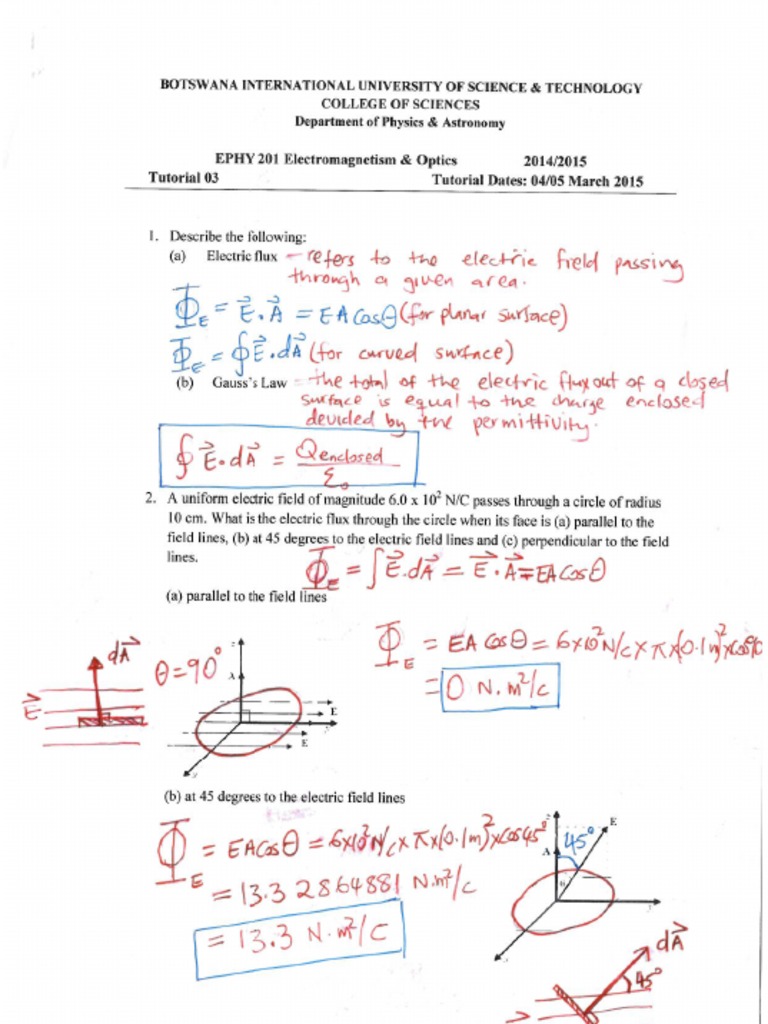 BOTSWANA INTERNATIONAL UNIVERSITY OF SCIENCE & TECHNOLOGY
COLLEGE OF SCIENCES
Department of Physics & Astronomy
EPHY 201 Electromagnetism & Optics 2014/2015
Tutorial 03 Tutorial Dates: 04/05 March 2015
1. Describe the following:
(a) Electric flux – refers to the electric field passing
through a given area.
Φ_E = E⃗.A⃗ = EA Cosθ (for planar surface)
Φ_E = ∮E⃗.dA⃗ (for curved surface)
(b) Gauss's Law = the total of the electric flux out of a closed
surface is equal to the charge enclosed
devided by the permittivity.
∮ E⃗.dA⃗ = Qenclosed/ε₀
2. A uniform electric field of magnitude 6.0 x 10² N/C passes through a circle of radius
10 cm. What is the electric flux through the circle when its face is (a) parallel to the
field lines, (b) at 45 degrees to the electric field lines and (c) perpendicular to the field
lines.
Φ_E = ∫E⃗.dA⃗ = E⃗.A⃗ = EA Cosθ
(a) parallel to the field lines
Φ_E = EA Cosθ = 6×10²N/C × π×(0.1m)²×Cos90
= 0 N.m²/C
dA⃗
θ = 90°
E⃗
z
A
E
y
E
x
(b) at 45 degrees to the electric field lines
Φ_E = EA Cosθ = 6×10²N/C × π×(0.1m)²×Cos45°
= 13.32864881 N.m²/C
= 13.3 N.m²/C
z
E
A
45°
θ
y
x
dA⃗
45°